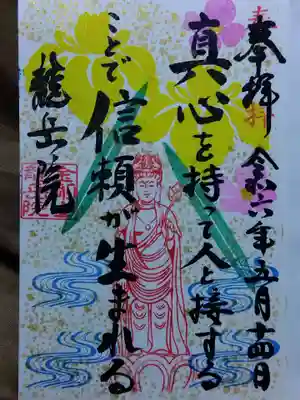 奉拝 令和六年五月十四日
真心を持って人と接する
ことで信頼が生まれる
龍岳院